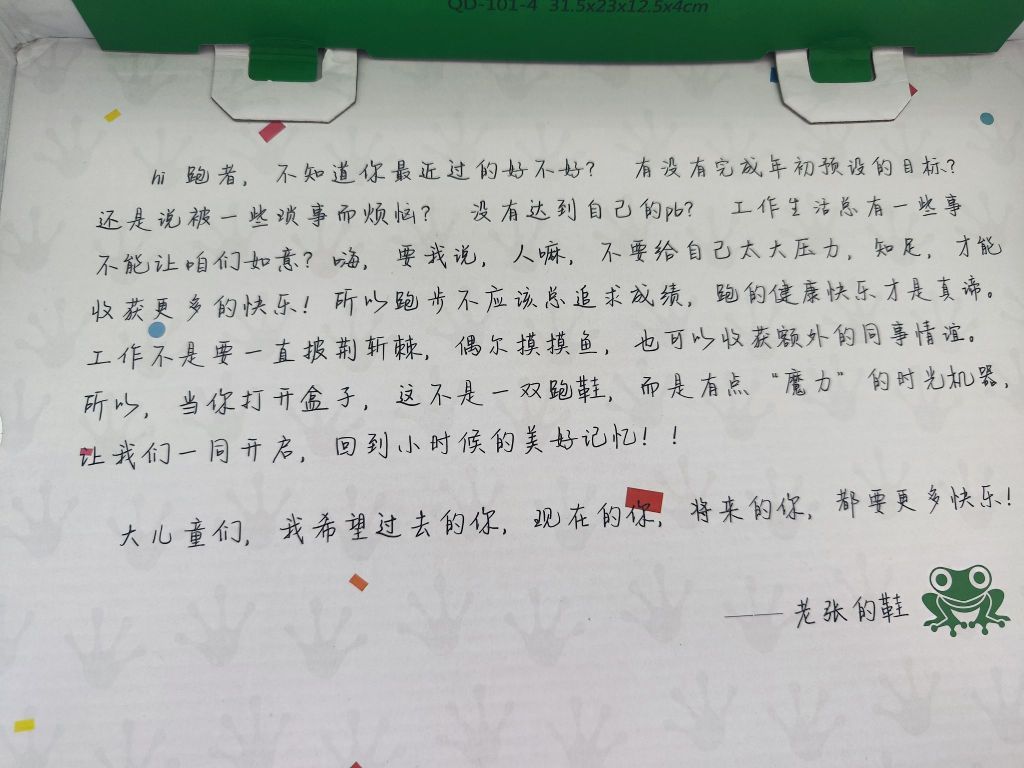 QD-101-4 31.5x23x12.5x4cm
hi 跑者，不知道你最近过的好不好？ 有没有完成年初预设的目标？
还是说被一些琐事而烦恼？ 没有达到自己的pb？ 工作生活总有一些事
不能让咱们如意？嗨，要我说，人嘛，不要给自己太大压力，知足，才能
收获更多的快乐！所以跑步不应该总追求成绩，跑的健康快乐才是真谛。
工作不是要一直披荆斩棘，偶尔摸摸鱼，也可以收获额外的同事情谊。
所以，当你打开盒子，这不是一双跑鞋，而是有点“魔力”的时光机器，
让我们一同开启，回到小时候的美好记忆！！
大儿童们，我希望过去的你，现在的你，将来的你，都要更多快乐！
——老张的鞋